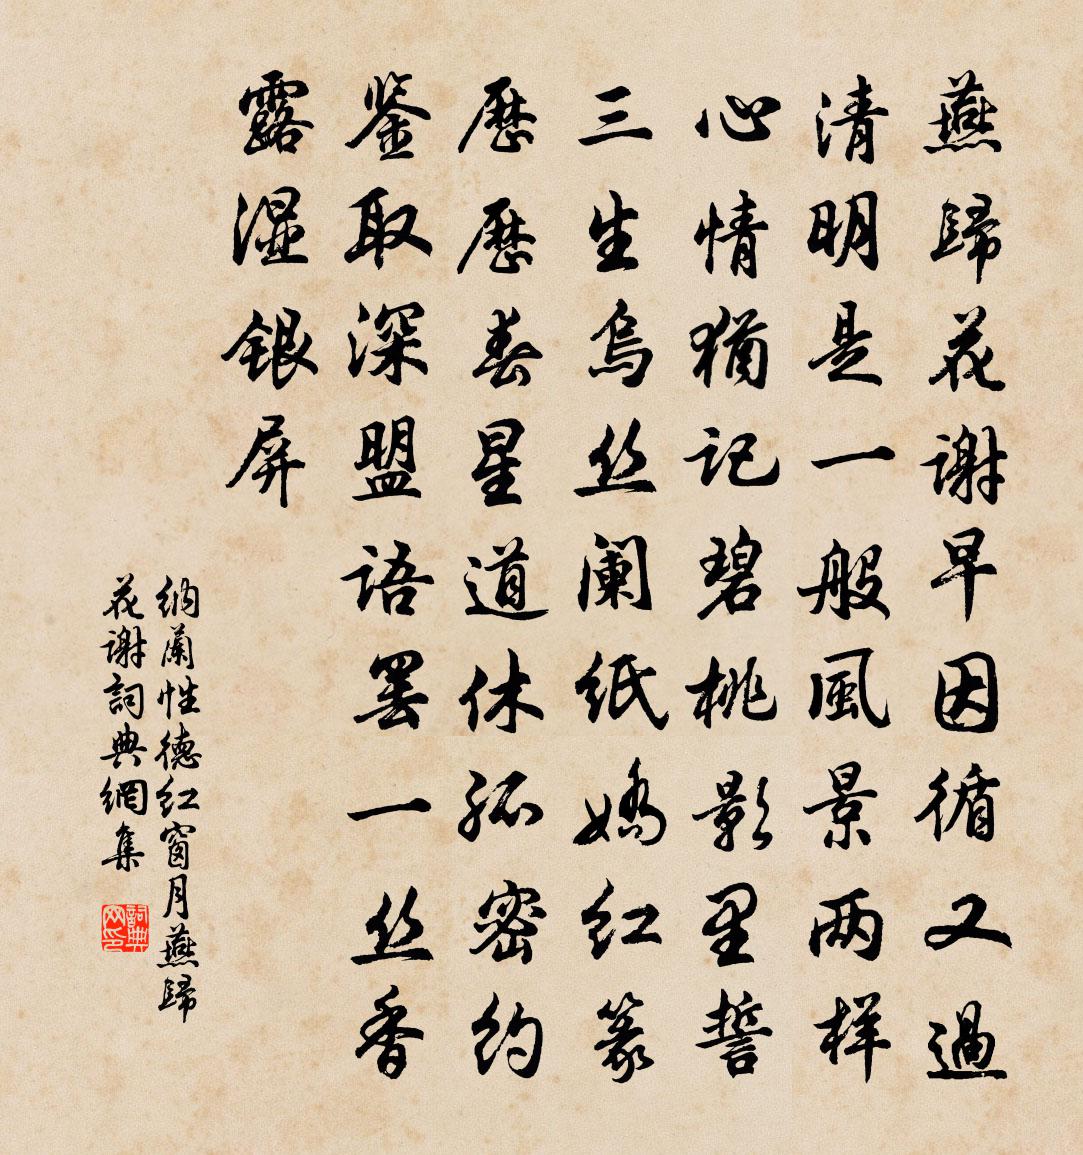 燕歸花谢早因循又過
清明是一般風景两样
心情猶记碧桃影里誓
三生烏丝阑纸嬌红篆
歷歷春星道休孤密约
鉴取深盟语罢一丝香
露湿银屏
纳蘭性德红窗月燕歸
花谢詞典網集
詞典网印